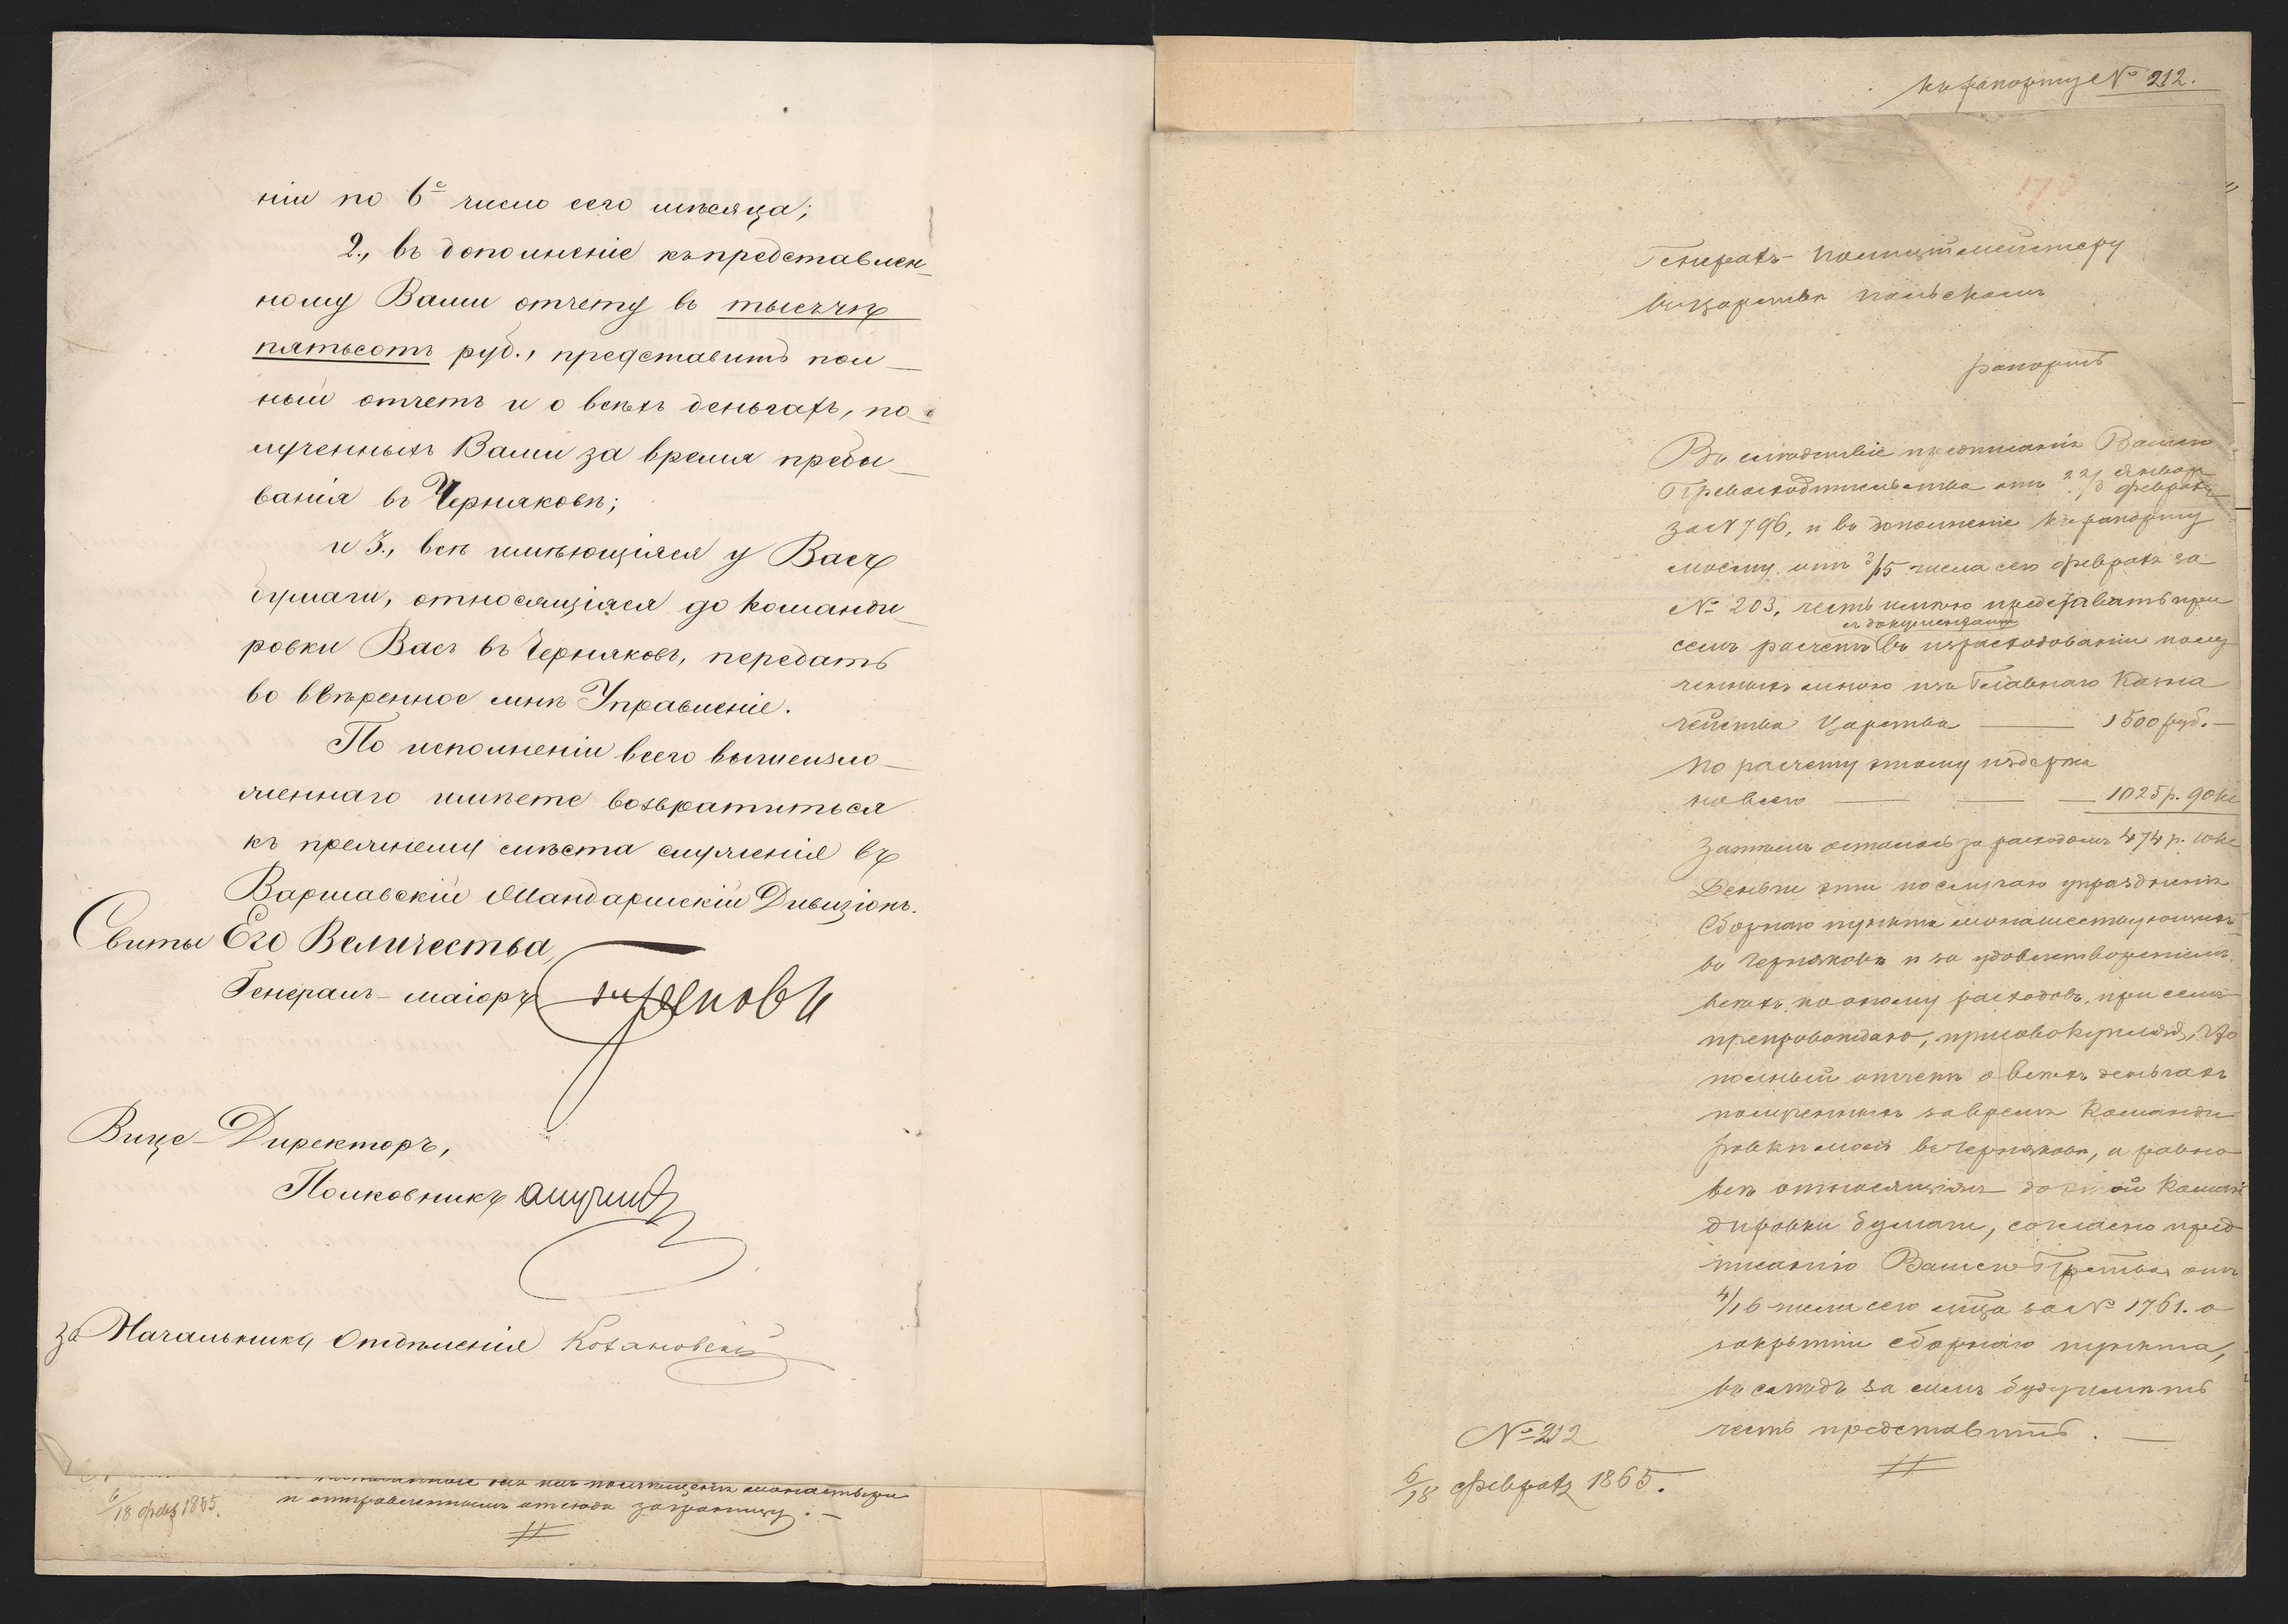 нiи по 6е число сего мѣсяца;
2., въ дополненiе къ представлен-
ному Вами отчету въ тысячѣ
пятьсотъ руб., представить пол-
ный отчетъ и о всѣхъ деньгахъ, по-
лученныхъ Вами за время пребы-
ванiя въ Черняковѣ;
и 3., всѣ имѣющiяся у Васъ
бумаги, относящiяся до команди-
ровки Васъ въ Черняковъ, передать
во ввѣренное мнѣ Управленiе.
По исполненiи всего вышеизло-
женнаго имѣете возвратиться
къ прежнему мѣста служенiя въ
Варшавскiй Жандармскiй Дивизiонъ.
Свиты Его Величества,
Генералъ-маiоръ Треповъ
Вице-Директоръ,
Полковникъ
за Начальника Отдѣленiя
6/18 февр 1865.
и отправленнымъ отсюда заграницу. —
къ рапорту № 212.
Генералъ-Полицiймейстеру
въ Царствѣ Польскомъ
рапортъ
Въ слѣдствiе предписанiя Вашего
Превосходительства отъ 22/3 Январ Февраля
за № 796, и въ дополненiе къ рапорту
моему отъ 3/15 числа сего Февраля за
№ 203, честь имѣю представить при
съ документами
семъ расчетъ въ израсходованiи полу
ченныхъ мною изъ Главнаго Казна
чейства Царства — 1500 руб. —
По расчету этому издержа
но всего — — — 1025 р. 90 к
Затѣмъ осталось за расходомъ 474 р. 10 к
Деньги эти по случаю упраздненiя
Сборнаго пункта монашествующихъ
въ Черняковѣ и за удовлетворенiемъ
всѣхъ по оному расходовъ при семъ
препровождаю, присовокупляя, что
полный отчетъ о всѣхъ деньгахъ
полученныхъ за время Команди
ровки моей въ Черняковъ, а равно
всѣ относящiяся до той Коман
дировки бумаги, согласно пред
писанiю Вашего Пр-ства отъ
4/16 числа сего м-ца за № 1761. о
закрытiи сборнаго пункта,
въ слѣдъ за симъ буду имѣть
честь представить. —
№ 212
6/18 Февраля 1865.